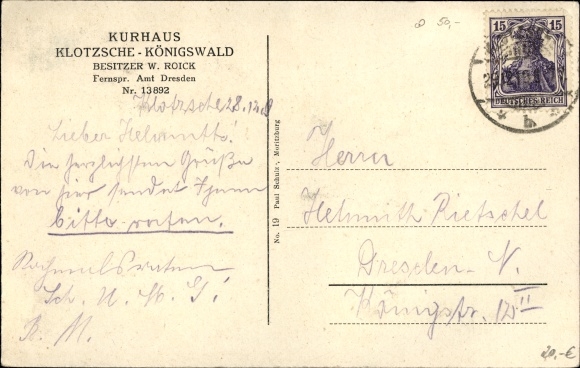 KURHAUS
KLOTZSCHE - KÖNIGSWALD
BESITZER W. ROICK
Fernspr. Amt Dresden
Nr. 13892
Klotzsche 28.
Lieber Helmuth!
Die herzlichsten Grüße
von hier sendet Ihnen
bitte raten.
Nochmals raten
Sch. U. M. G.!
R. M.
No. 19 Paul Schulz, Moritzburg
∞ 50,-
15 15
DEUTSCHES REICH
b
Herrn
Helmuth Rietschel
Dresden - N.
Königstr.
II
20,-€